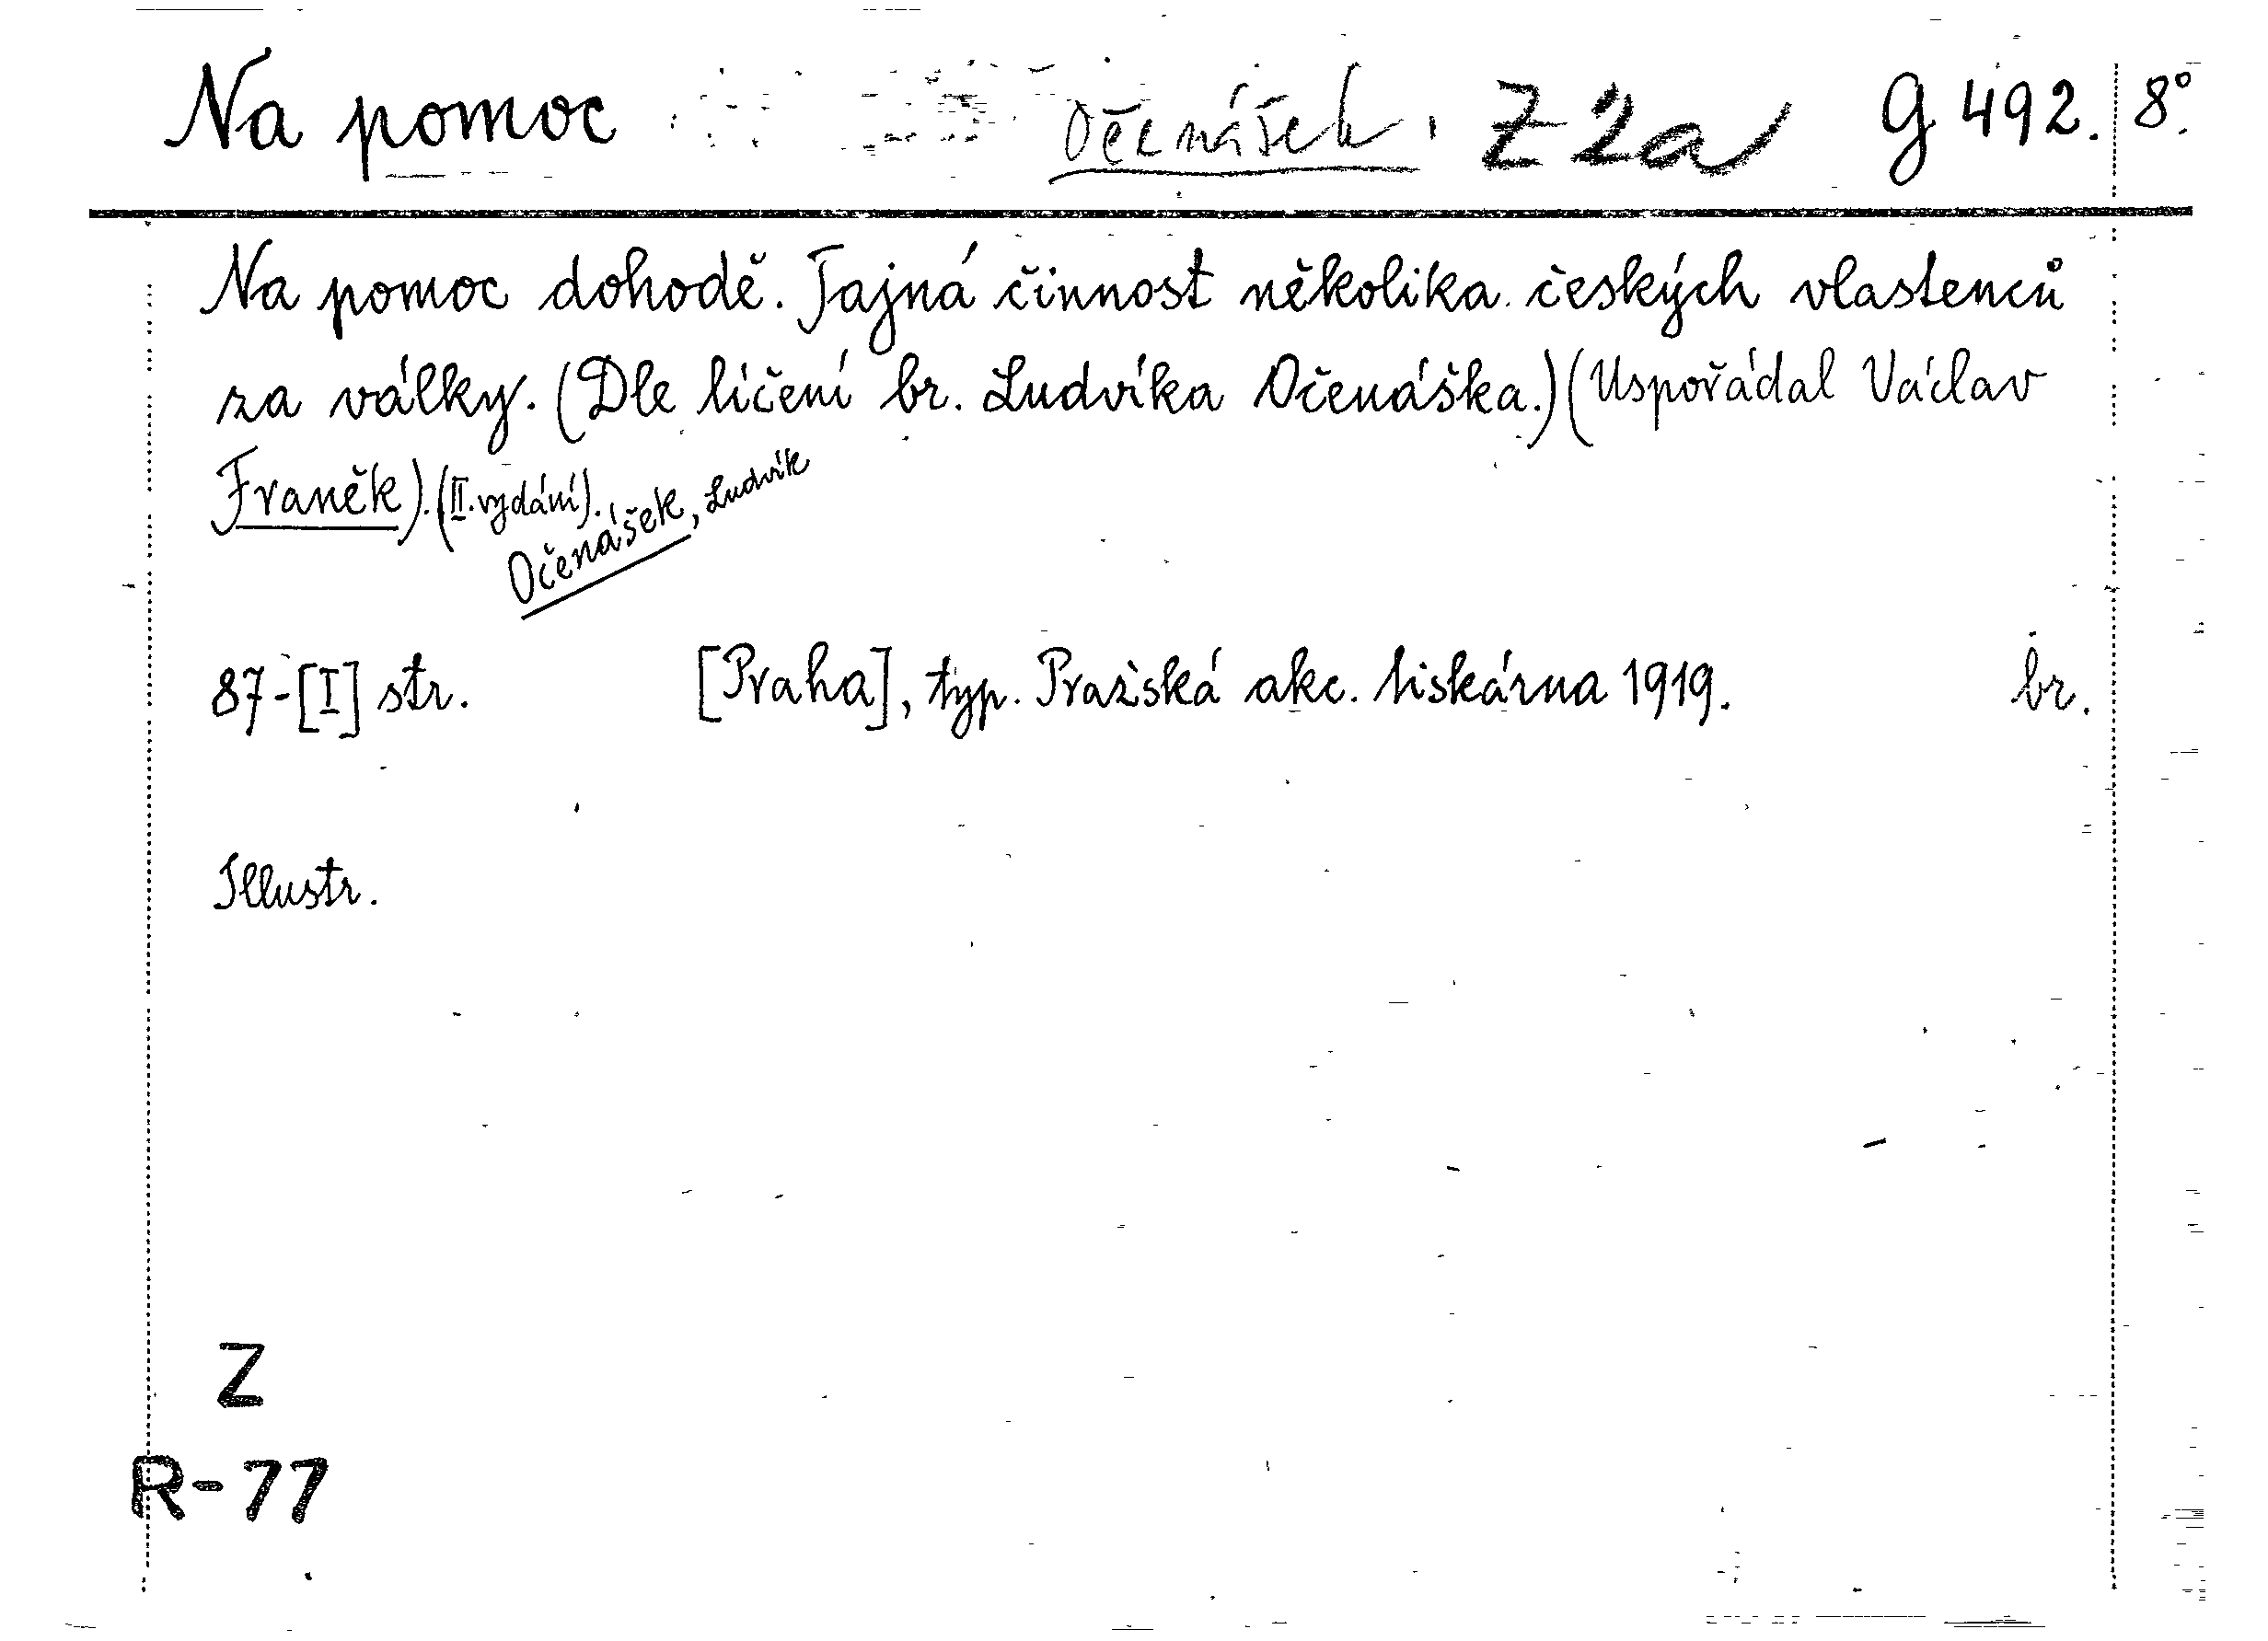 Na pomoc Očenášek Z 2a G 492. 8°.
Na pomoc dohodě. Tajná činnost několika českých vlastenců
za války. (Dle líčení br. Ludvíka Očenáška.) (Uspořádal Václav
Franěk). (II. vydání).
Očenášek, Ludvík
87-[I] str. [Praha], typ. Pražská akc. tiskárna 1919. br.
Illustr.
Z
R-77